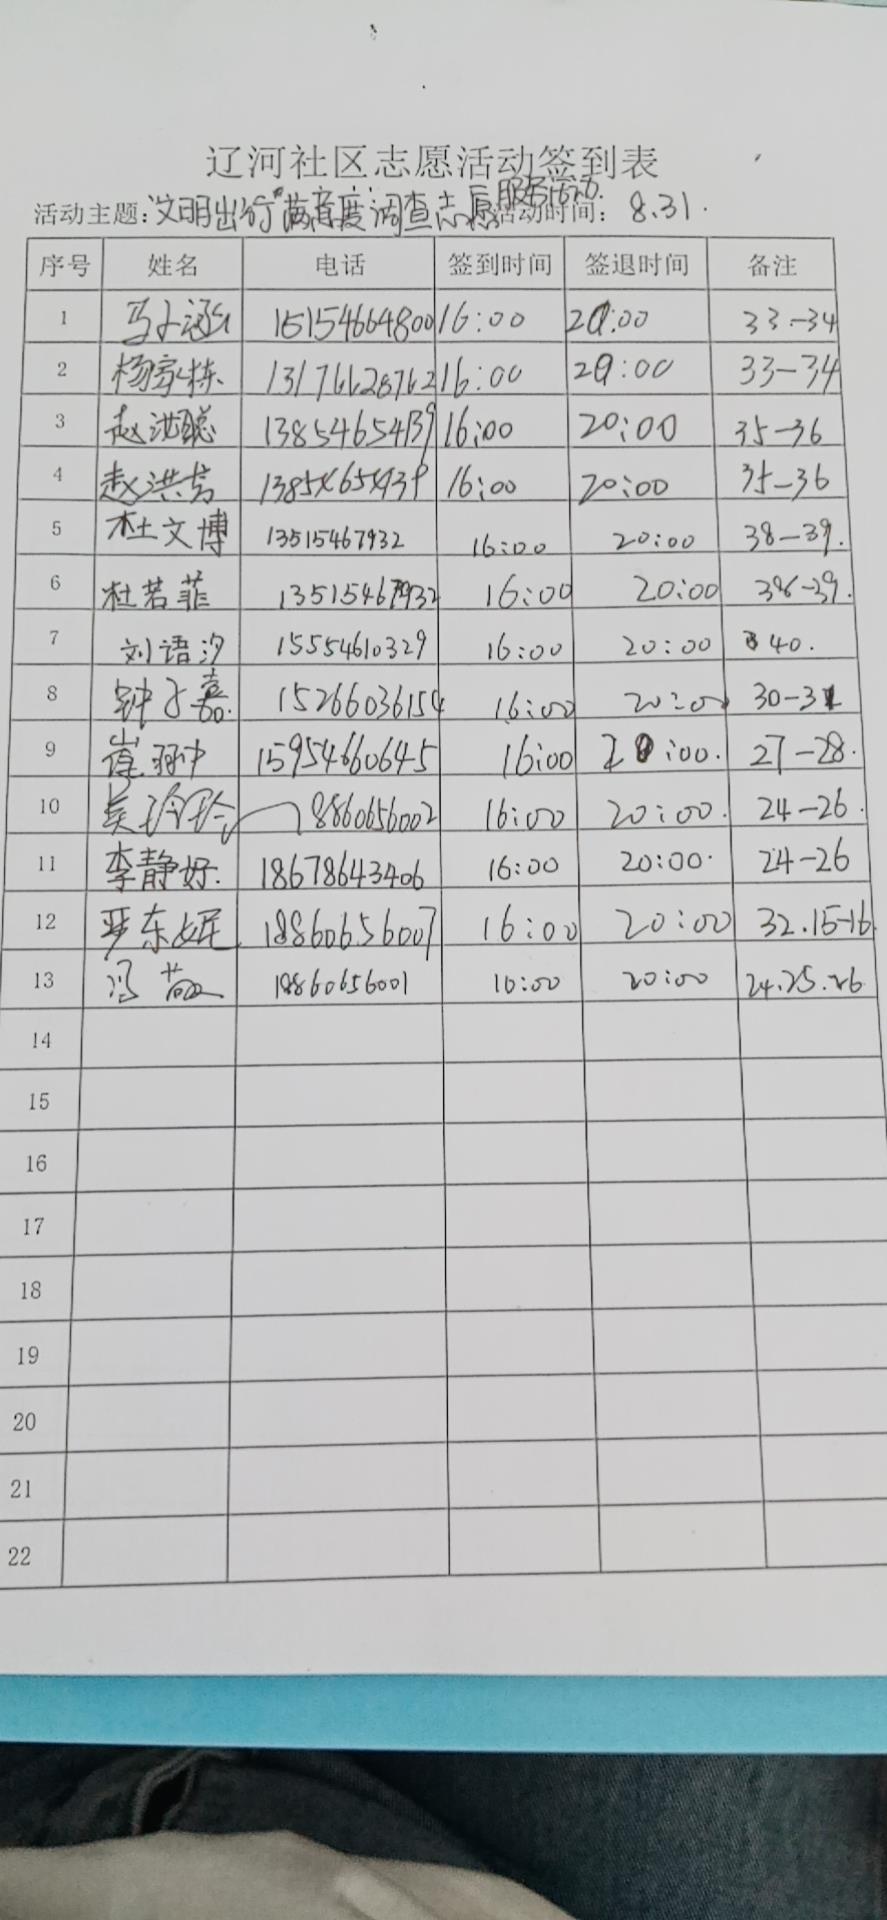 辽河社区志愿活动签到表
活动主题：“文明出行”满意度调查志愿服务活动 活动时间：8.31.
序号 姓名 电话 签到时间 签退时间 备注
1 马子涵 15154664800 16:00 20:00 33-34
2 杨家栋 13176628762 16:00 20:00 33-34
3 赵洪聪 13854654939 16:00 20:00 35-36
4 赵洪 16:00 20:00 35-36
5 杜文博 13515467932 16:00 20:00 38-39.
6 杜若菲 13515467932 16:00 20:00 38-39.
7 刘语汐 15554610329 16:00 20:00 40.
8 钟子嘉. 15266036154 16:00 20:00 30-31
9 崔 15954660645 16:00 20:00. 27-28.
10 吴玲玲 18860656002 16:00 20:00. 24-26.
11 李静好. 18678643406 16:00 20:00. 24-26
12 东 18860656007 16:00 20:00 32.15-16
13 冯薇 18860656001 16:00 20:00 24.25.26
14
15
16
17
18
19
20
21
22